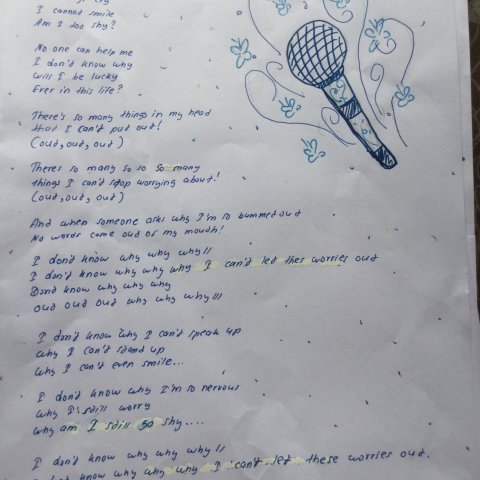 I cannot smile
Am I too shy?
No one can help me
I don't know why
Will I be lucky
Ever in this life?
There's so many things in my head
that I can't put out!
(out, out, out)
Theres so many so so so many
things I can't stop worrying about!
(out, out, out)
And when someone asks why I'm so bummed out
No words come out of my mouth!
I don't know why why why!!
I don't know why why why I can't let thes worries out
Dont know why why why
out out out why why why!!!
I don't know why I can't speak up
why I can't stand up
why I can't even smile...
I don't know why I'm so nervous
why I still worry
why am I still so shy....
I don't know why why why!!
know why why why I can't let these worries out.